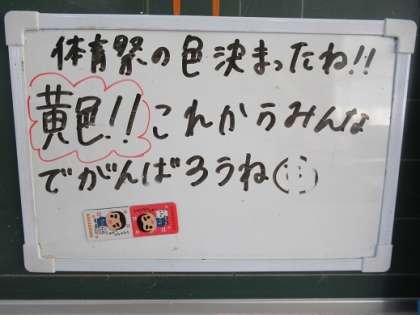 体育祭の色決まったね!!
黄色!!これからみんな
でがんばろうね